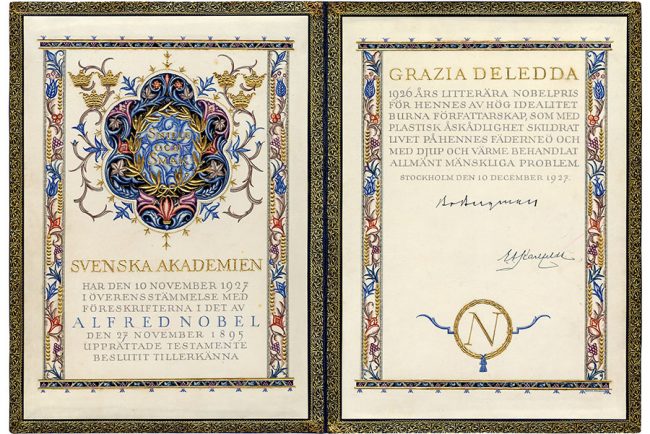 Snille
och
Smak
SVENSKA AKADEMIEN
HAR DEN 10 NOVEMBER 1927
I ÖVERENSSTÄMMELSE MED
FÖRESKRIFTERNA I DET AV
ALFRED NOBEL
DEN 27 NOVEMBER 1895
UPPRÄTTADE TESTAMENTE
BESLUTIT TILLERKÄNNA
GRAZIA DELEDDA
1926 ÅRS LITTERÄRA NOBELPRIS
FÖR HENNES AV HÖG IDEALITET
BURNA FÖRFATTARSKAP, SOM MED
PLASTISK ÅSKÅDLIGHET SKILDRAT
LIVET PÅ HENNES FÄDERNEÖ OCH
MED DJUP OCH VÄRME BEHANDLAT
ALLMÄNT MÄNSKLIGA PROBLEM.
STOCKHOLM DEN 10 DECEMBER 1927.
Bo Bergman
E A Karlfeldt
N